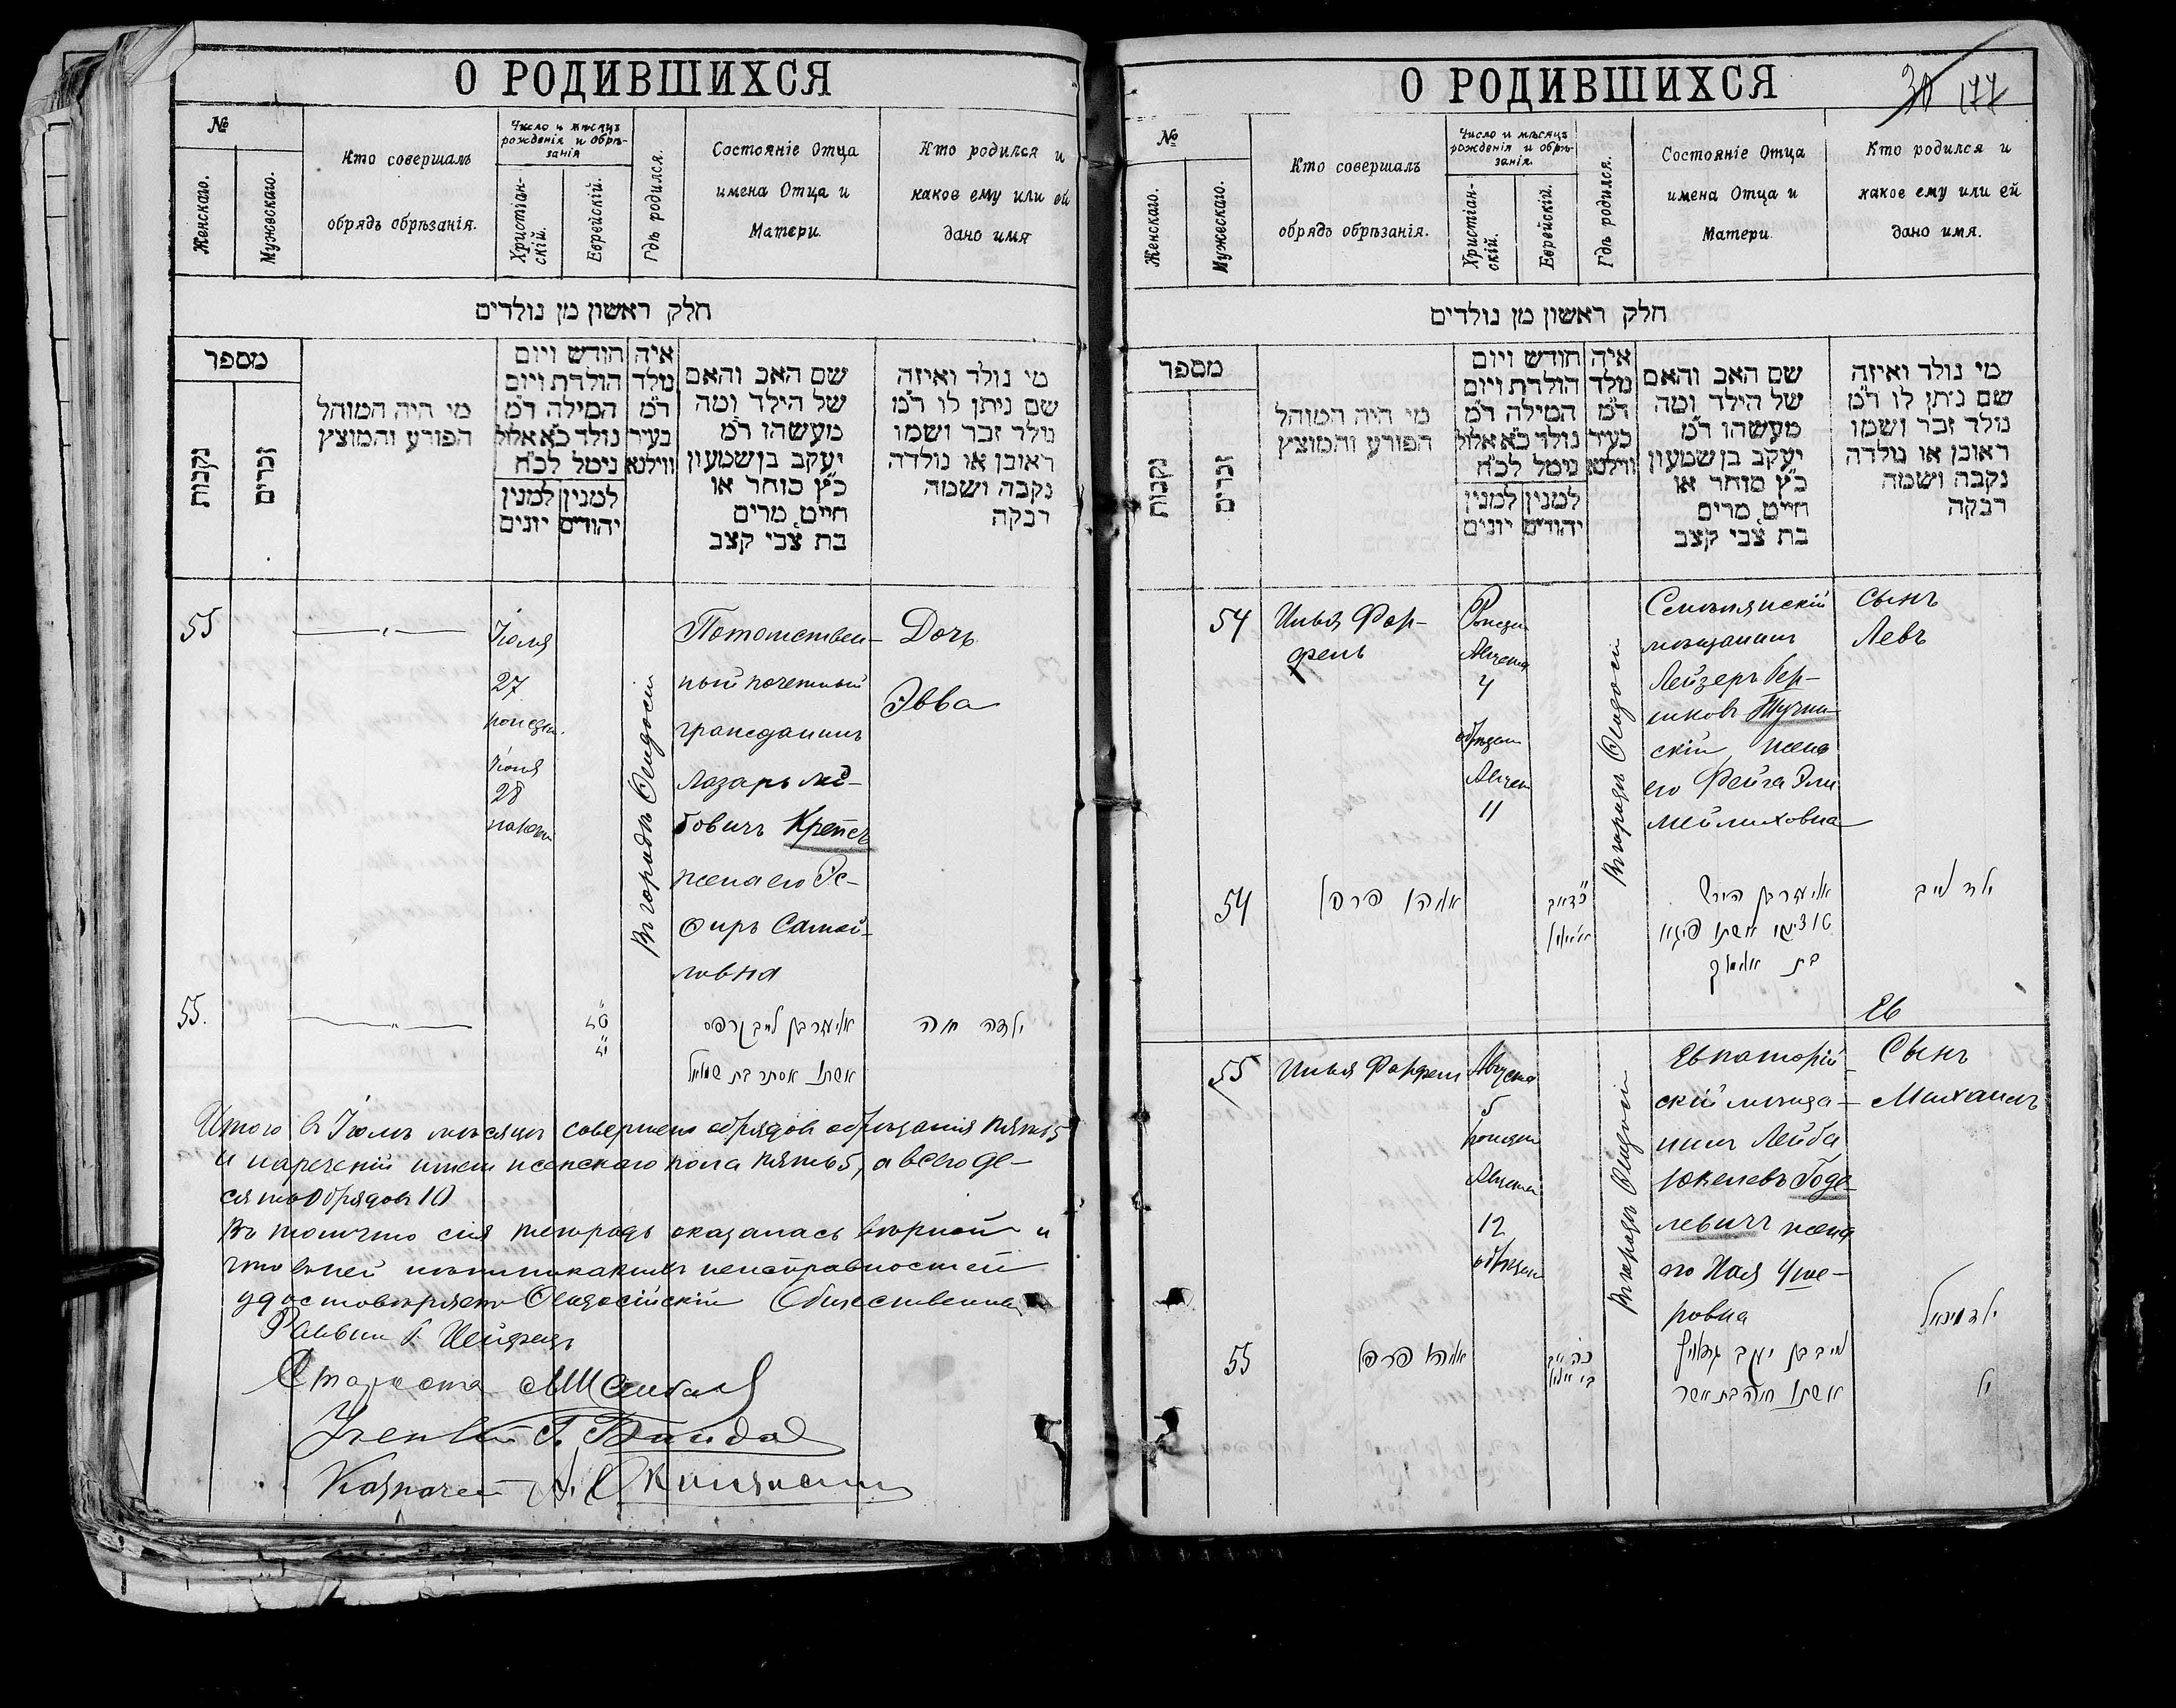 О РОДИВШИХСЯ
№
Женскаго.
Мужескаго.
Кто совершалъ
обрядъ обрѣзанія.
Число и мѣсяцъ
рожденія и обрѣ-
занія
Христіан-
скій.
Еврейскій.
Гдѣ родился.
Состояніе Отца
имена Отца и
Матери.
Кто родился и
какое ему или ей
дано имя
חלק ראשון מן נולדים
מספר
נקבות
זכרים
מי היה המוהל
הפורע והמוצץ
חודש ויום
הולדת ויום
המילה ד״מ
נולד כ״א אלול
נימל לכ״ח
למנין למנין
יהודים יונים
איה
נולד
ד״מ
בעיר
ווילנא
שם האב והאם
של הילד ומה
מעשהו ד״מ
יעקב בן שמעון
כ״ץ סוחר או
חייט, מרים
בת צבי קצב
מי נולד ואיזה
שם ניתן לו ד״מ
נולד זכר ושמו
ראובן או נולדה
נקבה ושמה
רבקה
55
Іюля
27
рожден.
Іюля
28
нареч.
Въ городѣ Ѳеодосіи
Потомствен-
ный почетный
гражданинъ
Лазарь Лей-
бовичъ Крепсъ
жена его Эс-
ѳирь Самой-
ловна
Дочь
Эвва
55.
אליעזר בן לייב קרפס
אשתו אסתר בת שמואל
ילדה חוה
Итого въ Іюлѣ мѣсяцѣ совершено обрядовъ обрѣзанія пять 5
и нареченій имени женскаго пола пять 5, а всего де-
сять обрядовъ 10
Въ томъ что сія тетрадь оказалась вѣрной и
что въ ней нѣтъ никакихъ неисправностей
удостовѣряетъ Ѳеодосійскій Общественный
Раввинъ
Староста
Казначей
О РОДИВШИХСЯ
30 177
№
Женскаго.
Мужескаго.
Кто совершалъ
обрядъ обрѣзанія.
Число и мѣсяцъ
рожденія и обрѣ-
занія.
Христіан-
скій.
Еврейскій.
Гдѣ родился.
Состояніе Отца
имена Отца и
Матери
Кто родился и
какое ему или ей
дано имя.
חלק ראשון מן נולדים
מספר
נקבות
זכרים
מי היה המוהל
הפורע והמוצץ
חודש ויום
הולדת ויום
המילה ד״מ
נולד כ״א אלול
נימל לכ״ח
למנין למנין
יהודים יונים
איה
נולד
ד״מ
בעיר
ווילנא
שם האב והאם
של הילד ומה
מעשהו ד״מ
יעקב בן שמעון
כ״ץ סוחר או
חייט, מרים
בת צבי קצב
מי נולד ואיזה
שם ניתן לו ד״מ
נולד זכר ושמו
ראובן או נולדה
נקבה ושמה
רבקה
54
Илья Фар-
фель
Рожден
Августа
4
обрѣзан
Август
11
Въ городѣ Ѳеодосіи
мѣщанинъ
Лейзеръ Гер-
шковъ Тучин-
скій жена
его Фейга Эли-
мейлиховна
сынъ
Левъ
54
אליהו פרפל
אליעזר בן הירש
אשתו פיגא
ילד לייב
Ев
55
Илья Фарфель
Августа
5
рожден
Августа
12
обрѣзан
Въ городѣ Ѳеодосіи
Евпаторій-
скій мѣща-
нинъ Лейба
Юкелевъ Годе-
левичъ жена
его Хая Уше-
ровна
Сынъ
Михаилъ
55
אליהו פרפל
לייב בן יעקב
אשתו חיה בת אשר
ילד מיכאל